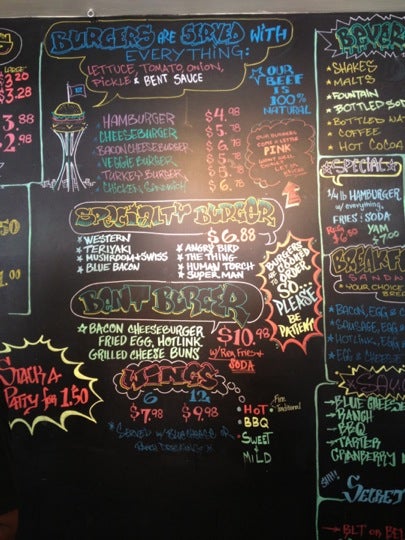 LARGE
3.20
$3.28
3.88
2.98
50
1.00
BURGERS ARE SERVED WITH
EVERYTHING:
LETTUCE, TOMATO, ONION,
PICKLE & BENT SAUCE
HAMBURGER $4.98
CHEESEBURGER
BACON CHEESEBURGER
VEGGIE BURGER
TURKEY BURGER
CHICKEN SANDWICH
★ OUR
BEEF
IS
100%
NATURAL
OUR BURGERS
COME A LITTLE
PINK
WANT WELL
SPECIALTY BURGER
$6.88
★ WESTERN
★ TERIYAKI
★ MUSHROOM + SWISS
★ BLUE BACON
★ ANGRY BIRD
★ THE THING
★ HUMAN TORCH
★ SUPERMAN
BURGERS
ARE COOKED
TO ORDER
SO
PLEASE
BE
PATIENT!
BENT BURGER
★ BACON CHEESEBURGER
FRIED EGG, HOTLINK
GRILLED CHEESE BUNS
$10.98
w/ Reg. Fries +
SODA
STACK A
PATTY for 1.50
WINGS
6 12
$7.98 $9.98
• HOT
• BBQ
• SWEET
• MILD
Traditional
★ SERVED W/
BEVER
★ SHAKES
★ MALTS
★ FOUNTAIN
★ BOTTLED SOD
★ BOTTLED WAT
★ COFFEE
★ HOT COCOA
SPECIAL
1/4 lb HAMBURGER
w/ everything,
FRIES & SODA
Reg. YAM
$6.50 $7.00
BREAKF
SANDW
★ YOUR CHOICE
BRE
★ BACON, EGG &
★ SAUSAGE, EGG &
★ HOTLINK, EGG &
★ EGG & CHEESE
SAUC
→ BLUE CHEESE
→ RANCH
→ BBQ
→ TARTER
CRANBERRY
SHH!
SECRET
→ BLT ON